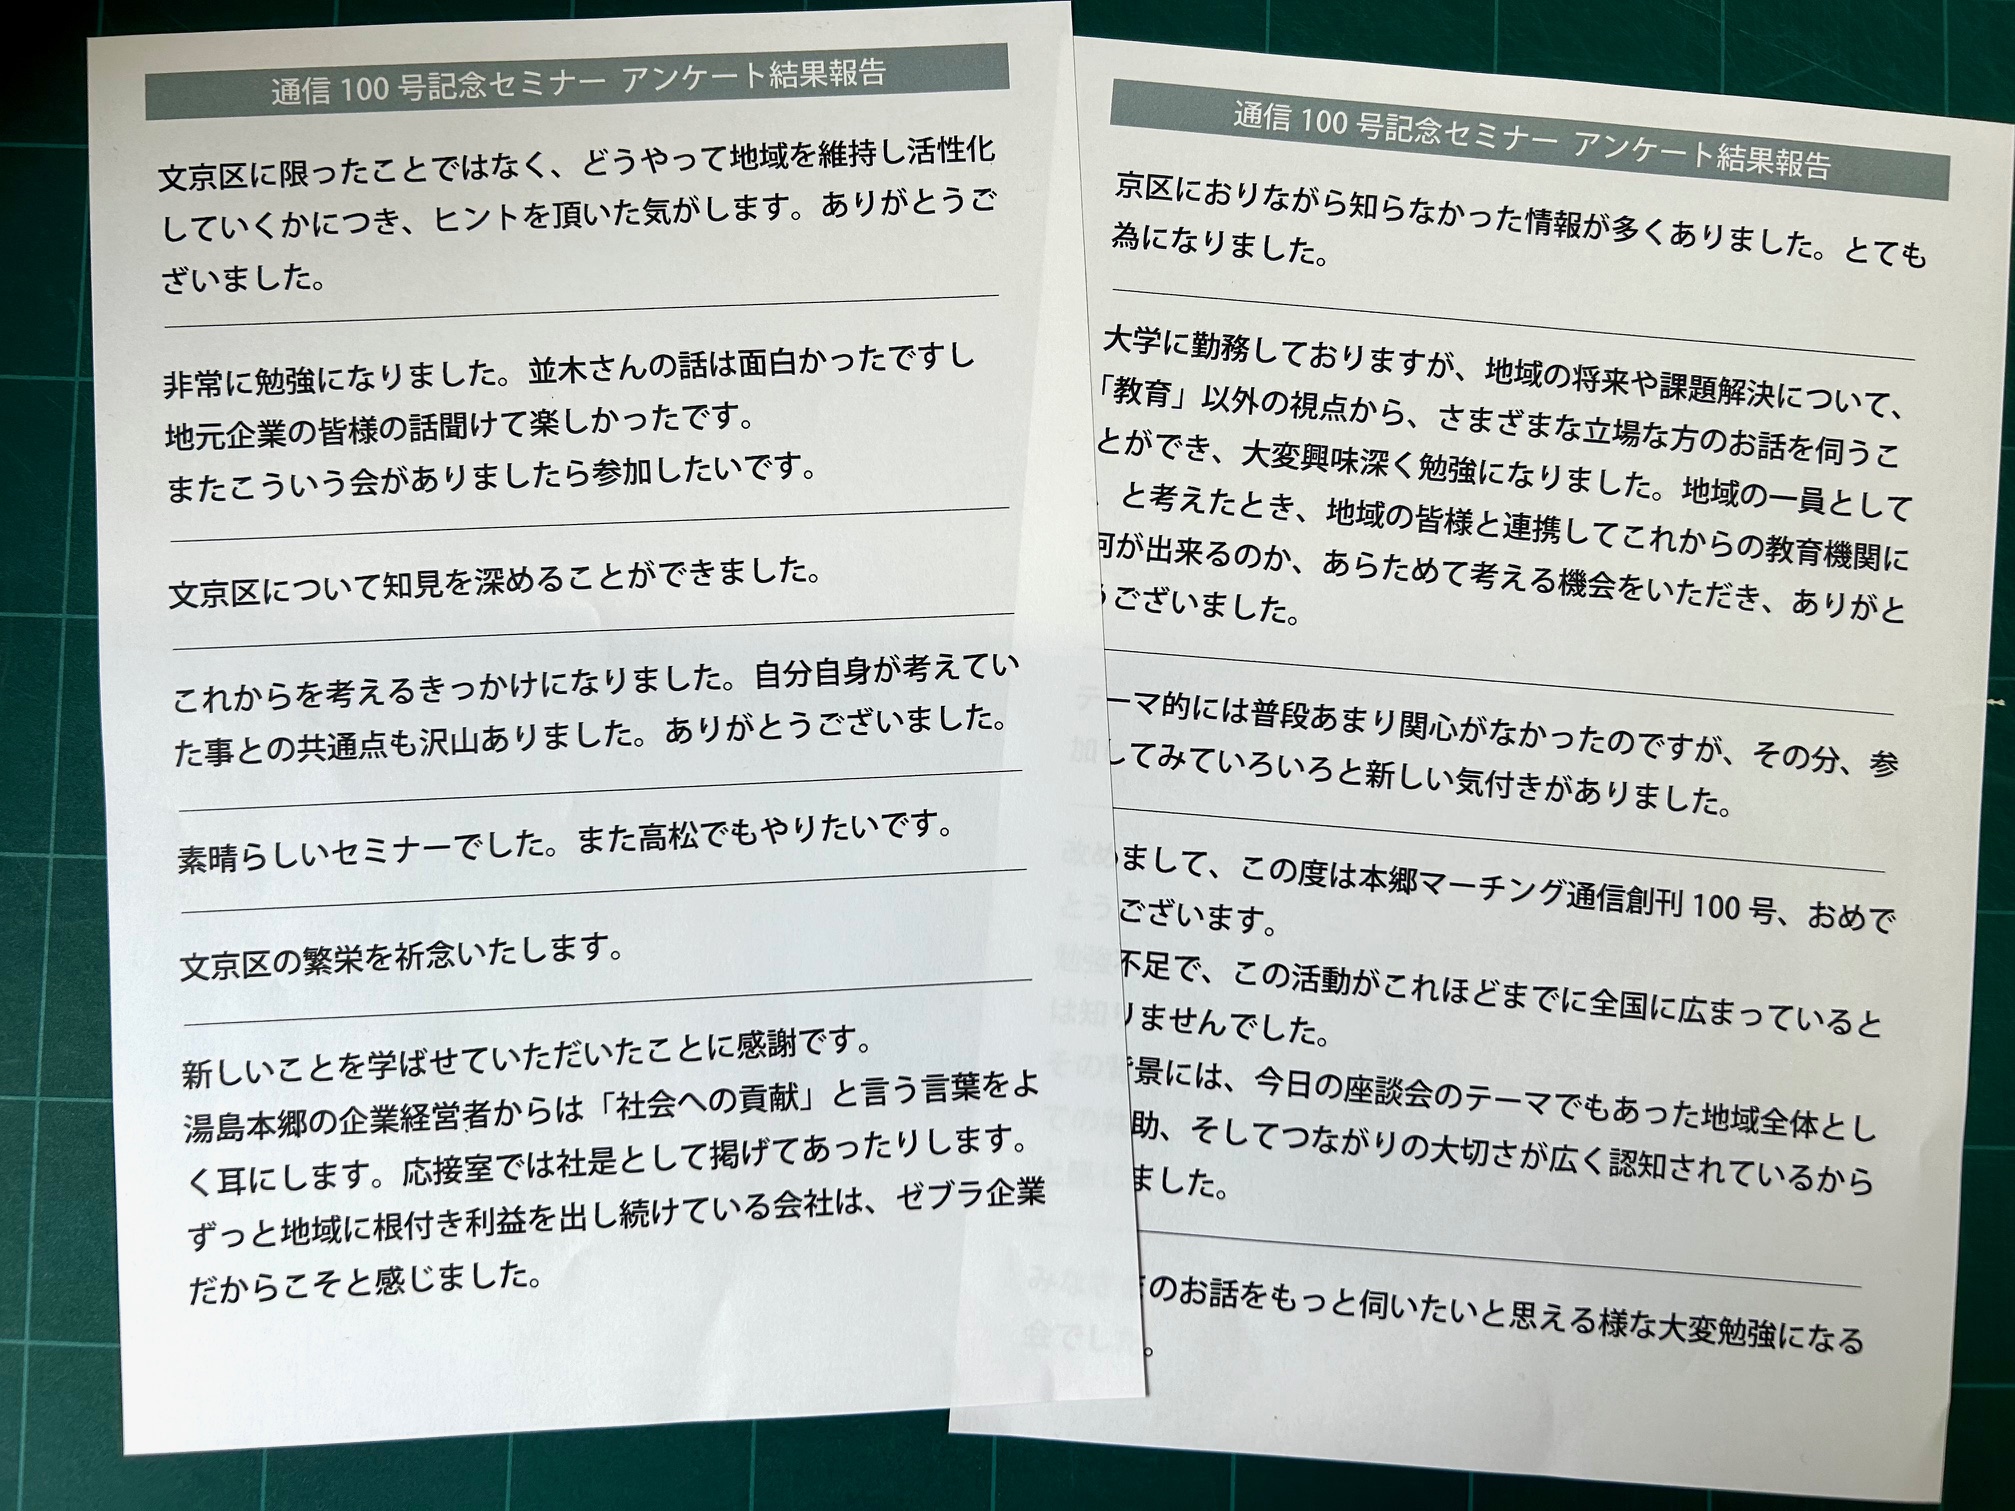 通信 100 号記念セミナー アンケート結果報告
文京区に限ったことではなく、どうやって地域を維持し活性化
していくかにつき、ヒントを頂いた気がします。ありがとうご
ざいました。
非常に勉強になりました。並木さんの話は面白かったですし
地元企業の皆様の話聞けて楽しかったです。
またこういう会がありましたら参加したいです。
文京区について知見を深めることができました。
これからを考えるきっかけになりました。自分自身が考えてい
た事との共通点も沢山ありました。ありがとうございました。
素晴らしいセミナーでした。また高松でもやりたいです。
文京区の繁栄を祈念いたします。
新しいことを学ばせていただいたことに感謝です。
湯島本郷の企業経営者からは「社会への貢献」と言う言葉をよ
く耳にします。応接室では社是として掲げてあったりします。
ずっと地域に根付き利益を出し続けている会社は、ゼブラ企業
だからこそと感じました。
通信 100 号記念セミナー アンケート結果報告
京区におりながら知らなかった情報が多くありました。とても
為になりました。
大学に勤務しておりますが、地域の将来や課題解決について、
「教育」以外の視点から、さまざまな立場な方のお話を伺うこ
とができ、大変興味深く勉強になりました。地域の一員として
、と考えたとき、地域の皆様と連携してこれからの教育機関に
何が出来るのか、あらためて考える機会をいただき、ありがと
うございました。
テーマ的には普段あまり関心がなかったのですが、その分、参
加してみていろいろと新しい気付きがありました。
改めまして、この度は本郷マーチング通信創刊 100 号、おめで
とうございます。
勉強不足で、この活動がこれほどまでに全国に広まっていると
は知りませんでした。
その背景には、今日の座談会のテーマでもあった地域全体とし
ての助、そしてつながりの大切さが広く認知されているから
ました。
みなさまのお話をもっと伺いたいと思える様な大変勉強になる
会でした。